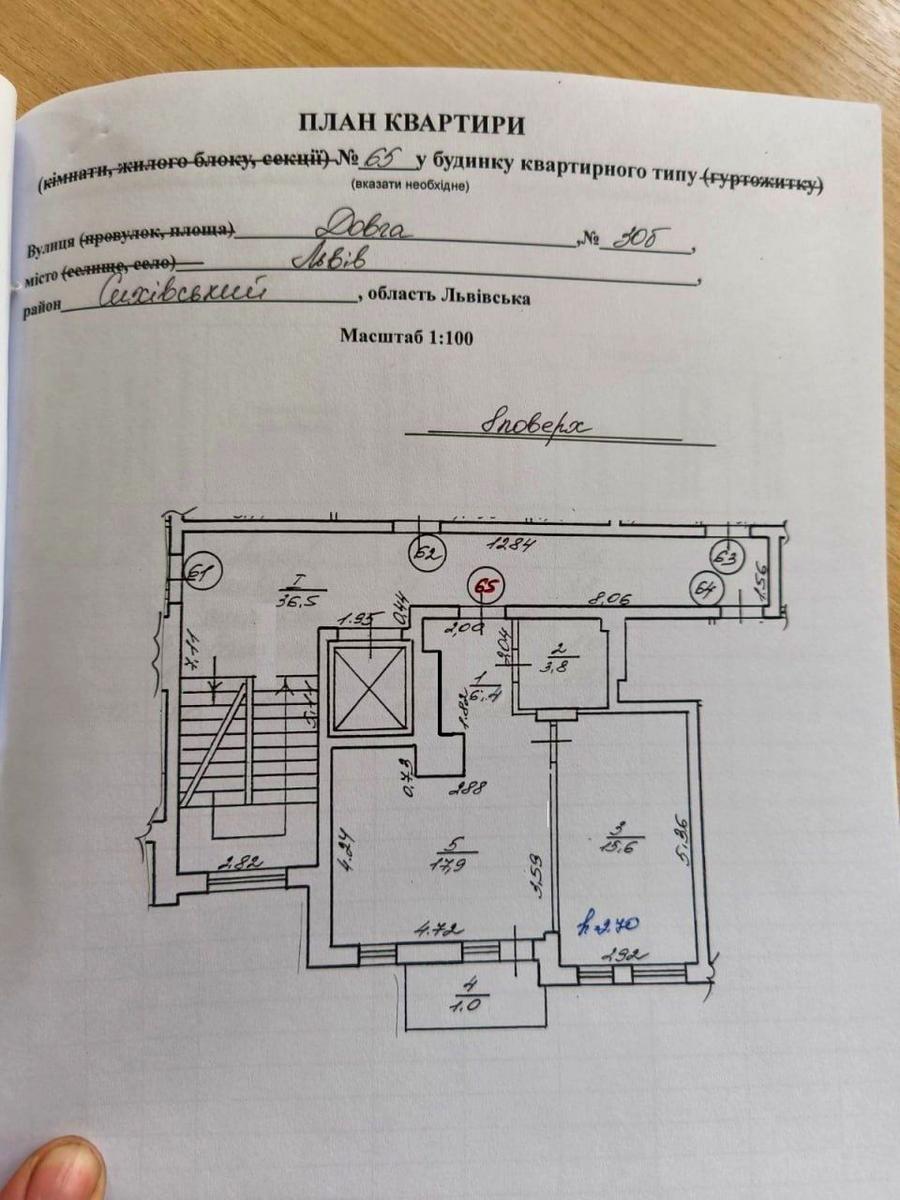 ПЛАН КВАРТИРИ
(кімнати, жилого блоку, секції) № 65 у будинку квартирного типу (гуртожитку)
(вказати необхідне)
Вулиця (провулок, площа) Довга ,№ 30б ,
місто (селище, село) Львів ,
район Сихівський , область Львівська
Масштаб 1:100
8 поверх
61
62
12.84
63
I
36,5
65
64
8,06
1.56
1.95
0,44
2,09
7.11
5.11
2.04
2
3.8
1
6,4
1.82
0.73
2.88
4.24
5
17,9
3,59
3
15,6
5.36
2.82
4.72
h=2.70
2.92
4
1.0